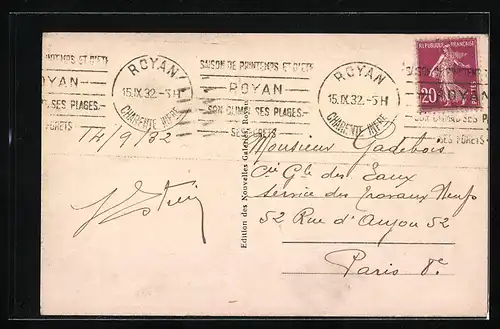 SAISON DE PRINTEMPS ET D'ETE
ROYAN
SON CLIMAT, SES PLAGES.
SES FORETS
ROYAN
15.IX.32.-5H
CHARENTE INFRE
SAISON DE PRINTEMPS ET D'ETE
ROYAN
SON CLIMAT, SES PLAGES.
SES FORETS
ROYAN
15.IX.32.-5H
CHARENTE INFRE
REPUBLIQUE FRANÇAISE
20
POSTES
14/9/32
Edition des Nouvelles Galeries, Royan
Monsieur Gadebois
Cie Gle des Eaux
Service des Travaux Neufs
52 Rue d'Anjou 52
Paris 8e